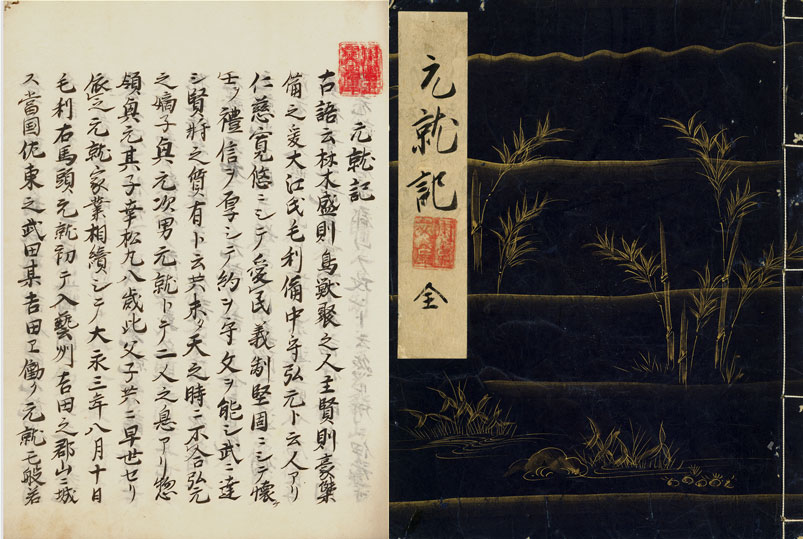 元就記
全
元就記
古語云林木盛則鳥獣聚之人主賢則豪傑
備之爰大江氏毛利備中守弘元ト云人アリ
仁慈寛悠ニシテ愛民義制堅固ニシテ懐
ノ禮信ヲ厚シテ約ヲ守文ヲ能シ武ニ達
シ賢将之質有ト云共未タ天之時ニ不合弘元
之嫡子興元次男元就トテ二人之息アリ惣
領興元其子幸松丸八歳此父子共ニ早世セリ
依之元就家業相續シテ大永三年八月十日
毛利右馬頭元就初テ入藝州吉田之郡山ニ城
ス當国佐東之武田某吉田エ働ク元就モ般若